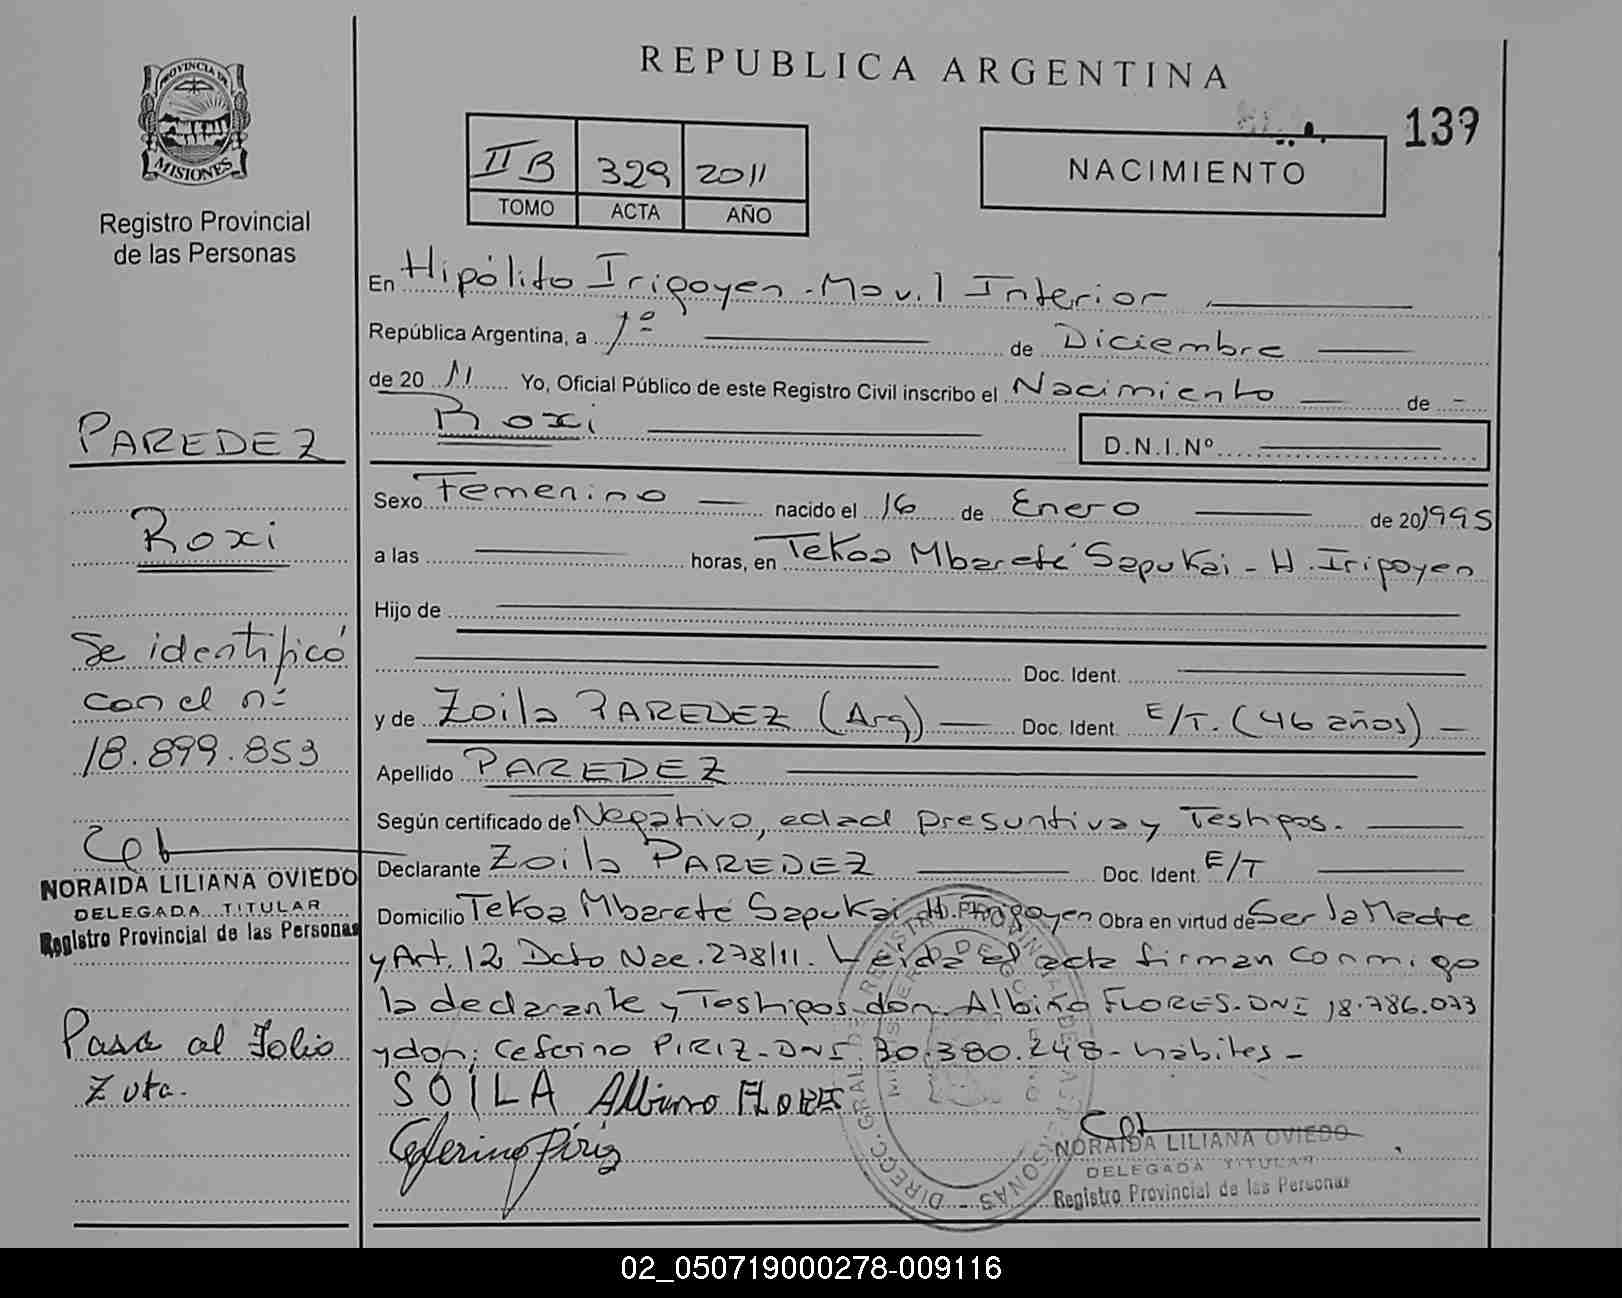 REPUBLICA ARGENTINA
139
PROVINCIA DE
MISIONES
Registro Provincial
de las Personas
II B 329 2011
TOMO ACTA AÑO
NACIMIENTO
En Hipólito Irigoyen - Movil Interior
República Argentina, a 1º de Diciembre
de 20 11 Yo, Oficial Público de este Registro Civil inscribo el Nacimiento de
Roxi
D.N.I.Nº
Sexo Femenino nacido el 16 de Enero de 20 1995
a las horas, en Tekoa Mbareté Sapukai - H. Iripoyen
Hijo de
Doc. Ident.
y de Zoila PAREDEZ (Arg) Doc. Ident. E/T. (46 años)
Apellido PAREDEZ
Según certificado de Negativo, edad presuntiva y Testigos.
Declarante Zoila PAREDEZ Doc. Ident. E/T
Domicilio Tekoa Mbareté Sapukai H. Irigoyen Obra en virtud de Ser la Madre
y Art. 12 Dcto Nac. 278/11. Leída El acta firman conmigo
la declarante y Testigos don: Albino FLORES - DNI 18.786.073
y don: Ceferino PIRIZ - DNI. 30.380.248 - hábiles -
SOILA Albino FLORES
Ceferino Piriz
NORAIDA LILIANA OVIEDO
DELEGADA TITULAR
Registro Provincial de las Personas
PAREDEZ
Roxi
Se identificó
con el nº
18.899.853
NORAIDA LILIANA OVIEDO
DELEGADA TITULAR
Registro Provincial de las Personas
Pasa al Folio
Zuta.
02_050719000278-009116